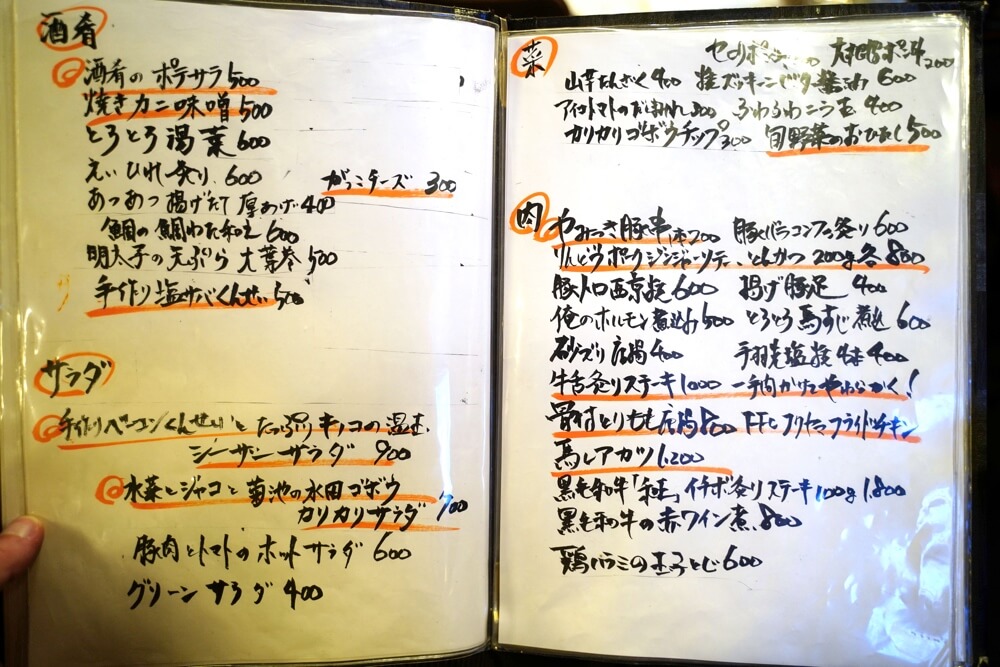 酒肴
酒肴の ポテサラ 500
焼きカニ味噌 500
とろとろ湯葉 600
えいひれ炙り 600
がっこチーズ 300
あつあつ揚げたて厚あげ 400
鯛の鯛わた和え 600
明太子の天ぷら 大葉巻 500
手作り塩サバくんせい 500
サラダ
手作りベーコンくんせいと たっぷりキノコの温玉
シーザーサラダ 900
水菜とジャコと菊池の水田ゴボウ
カリカリサラダ 700
豚肉とトマトのホットサラダ 600
グリーンサラダ 400
菜
セロリポン 200
山芋たんざく 400
600
アイコトマトのだし 300 ふわふわニラ玉 400
カリカリゴボウチップ 300 旬野菜のおひたし 500
肉
やみつき豚串 1本200 豚バラコンフの炙り 600
りんどうポークジンジャーソテー、とんかつ 200g各800
豚トロ西京焼 600 揚げ豚足 400
俺のホルモン煮込み 500 とろとろ馬すじ煮込 600
砂ズリ広揚 400 手羽先塩焼 4本400
牛舌炙りステーキ 1000 一手間かけてやわらかく!
骨付とりもも広揚 800 FFC フライドチキン
馬レアカツ 1.200
黒毛和牛「和王」イチボ炙りステーキ 100g 1.800
黒毛和牛の赤ワイン煮 800
鶏ハラミの玉子とじ 600